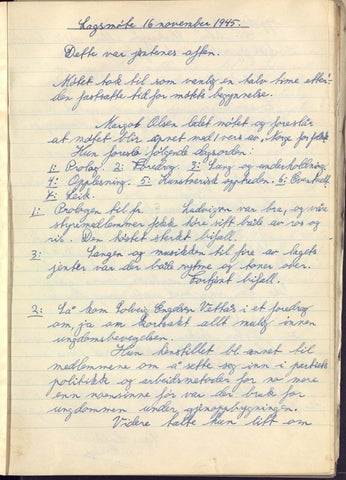 Lagsmøte 16 november 1945.
Dette var jentenes aften.
Møtet tok til som vanlig en halv time etter
den fastsatte tid for møtets begynnelse.
Margot Olsen ledet møtet og foreslo
at møfet blir åpnet med 1 vers av, Norge for folket
Hun foreslo følgende dagsorden:
1: Prolog. 2: Foredrag. 3: Sang og underholdning.
4: Opplesning. 5: Kunstnerisk oppheden. 6: Eventuelt.
7: Leik.
1: Prologen til fr. Ludvigsen var bra, og våre
styremedlemmer fikk høre sitt både av ros og
ris. Den høstet sterkt bifall.
3: Sangen og musikken til fire av lagets
jenter var der både rytme og toner over.
Fortjent bifall.
2: Så kom Solveig Engdon Vethar i et foredrag
om, ja om kortsakt allt mulig innen
ungdomsbevegelsen.
Hun henstillet bl. annet til
medlemmene om å sette seg inn i partiets
politikk og arbeidsmetoder for no mere
enn noensinne før var der bruk for
ungdommen under gjenoppbygningen.
Videre talte hun litt om